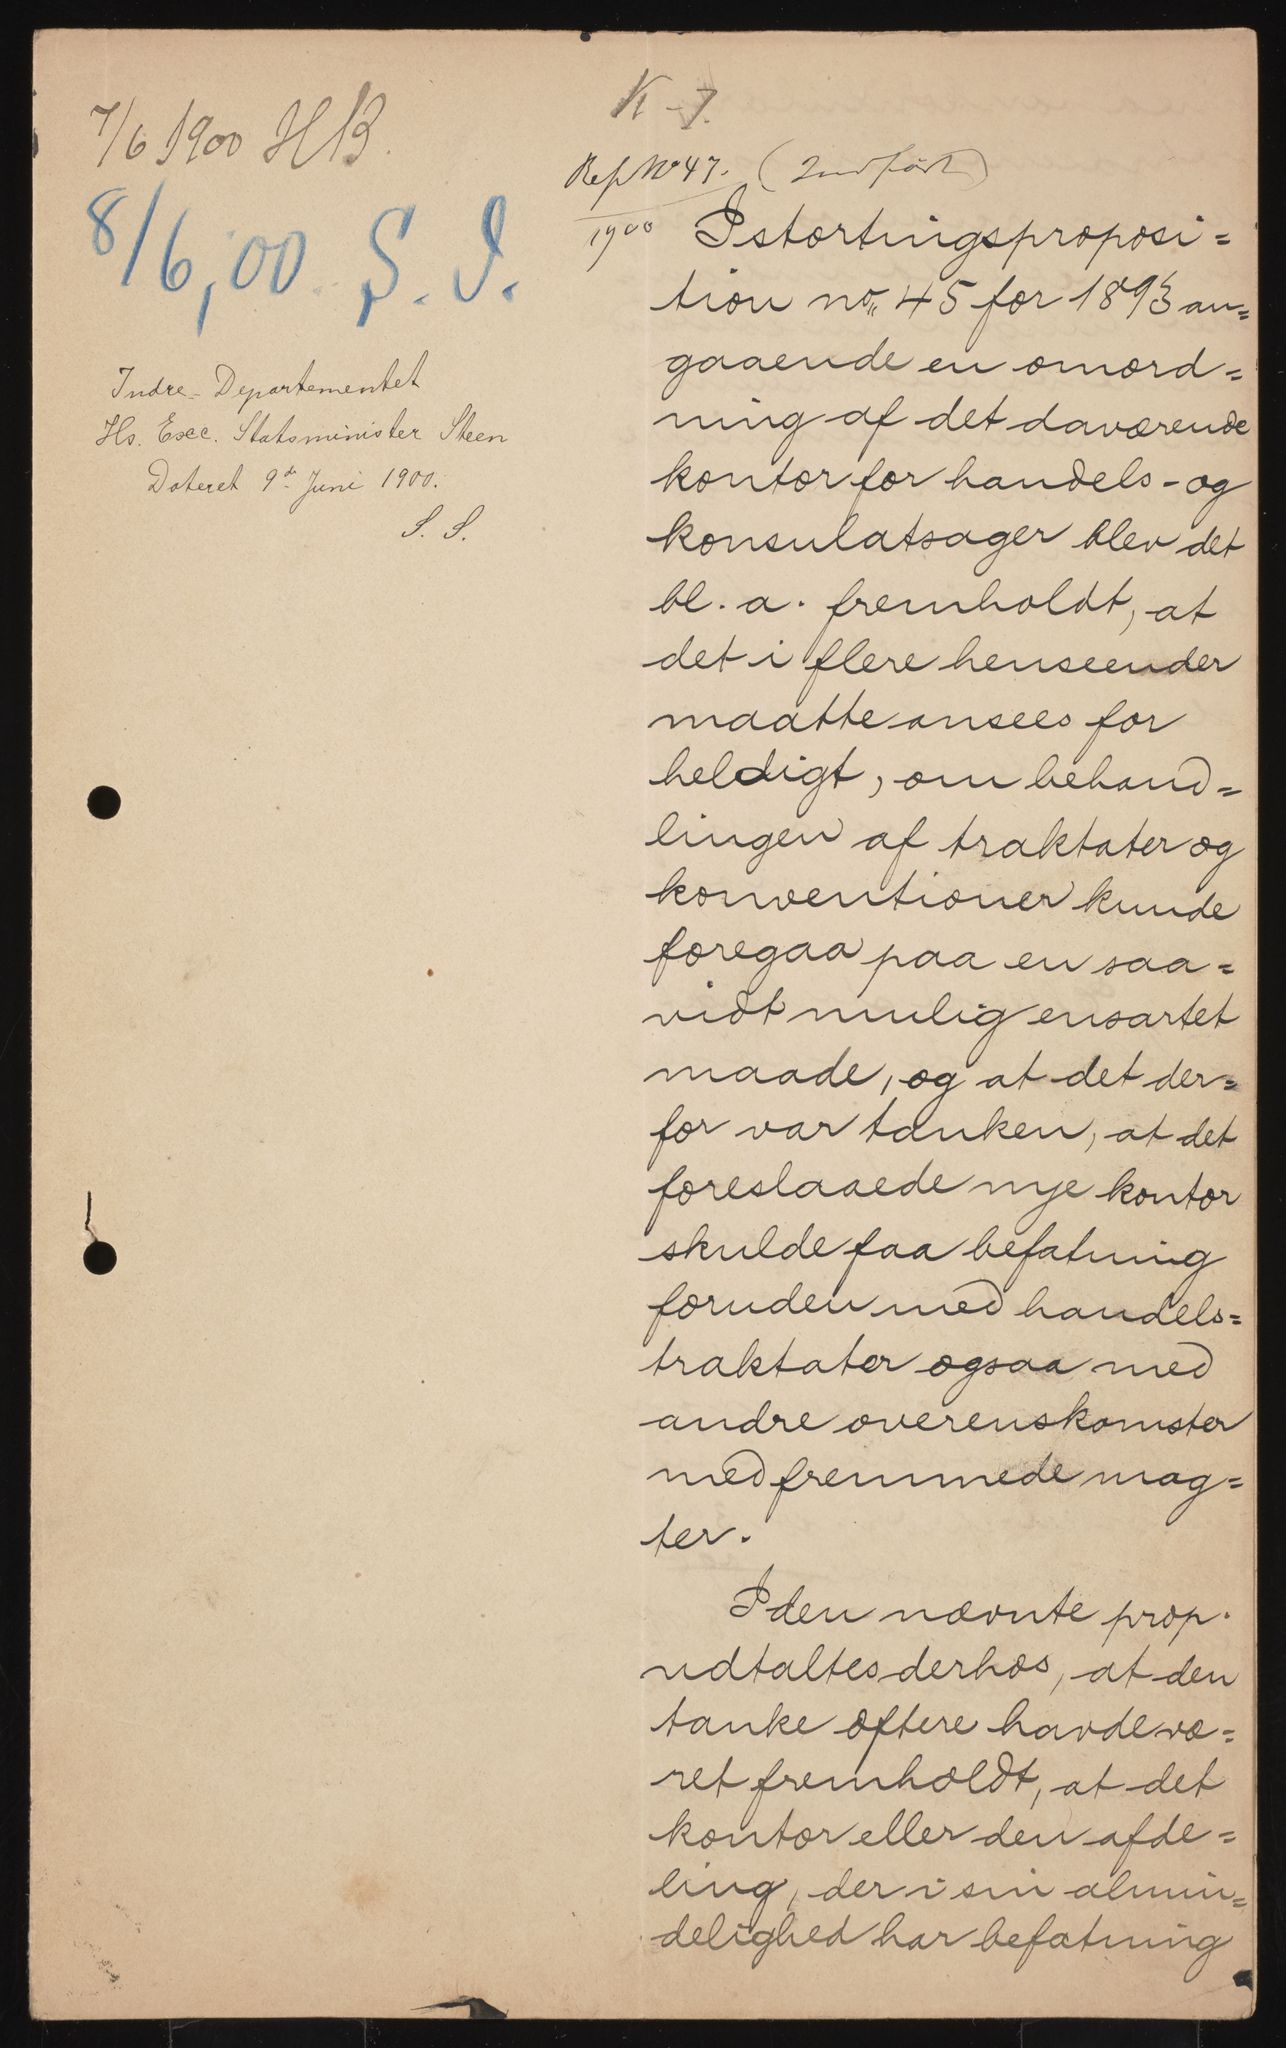 7/6 1900 HB.
8/6,00. S. I.
Indre-Departementet
Hs. Exc. Statsminister Steen
Dateret 9de Juni 1900.
S. S.
K 7.
Ref No 47. (Indført)
1900
I stortingsproposi=
tion no. 45 for 1893 an=
gaaende en omord=
ning af det daværende
kontor for handels- og
konsulatsager blev det
bl. a. fremholdt, at
det i flere henseender
maatte ansees for
heldigt, om behand=
lingen af traktater og
konventioner kunde
foregaa paa en saa=
vidt mulig ensartet
maade, og at det der=
for var tanken, at det
foreslaaede nye kontor
skulde faa befatning
foruden med handels=
traktater ogsaa med
andre overenskomster
med fremmede mag=
ter.
I den nævnte prop.
udtaltes derhos, at den
tanke oftere havde væ=
ret fremholdt, at det
kontor eller den afde=
ling, der i sin almin=
delighed har befatning